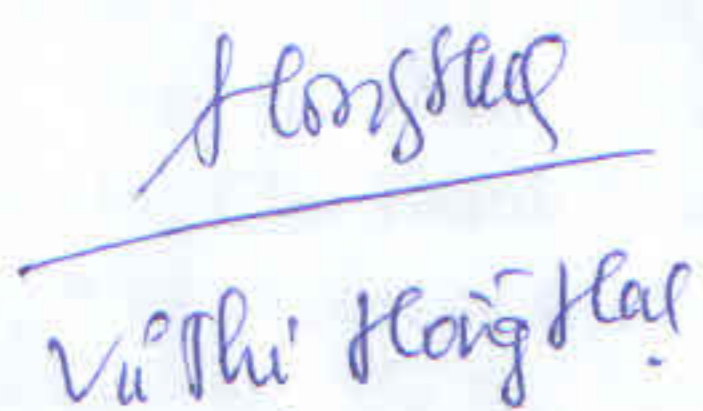 HongHạ
Vũ Thị Hồng Hạ